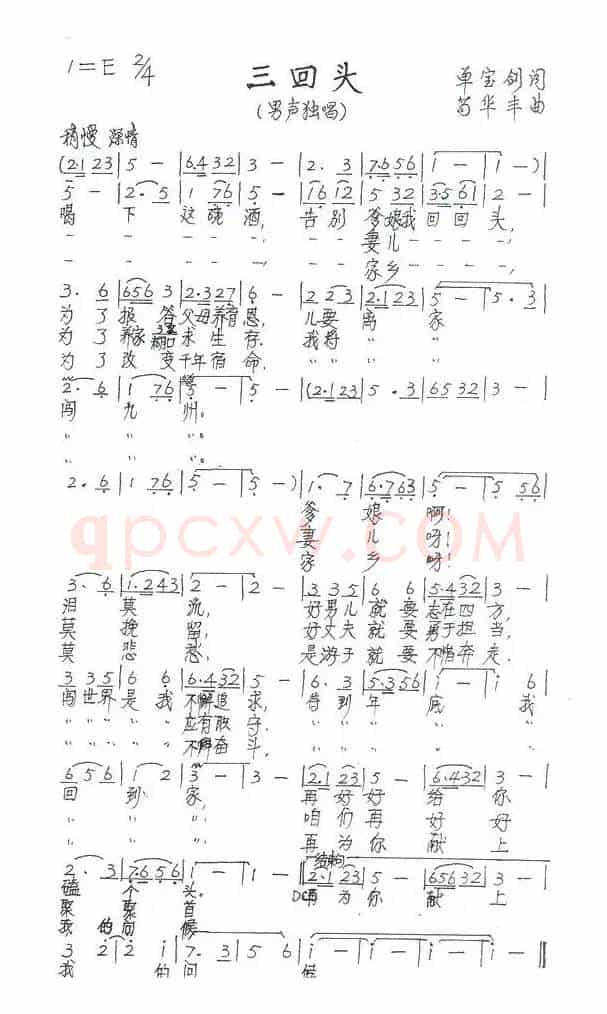 1=E 2/4
三回头
单宝剑词
(男声独唱)
苟华丰曲
稍慢 深情
(2·1 23 | 5 - | 6·4 32 | 3 - | 2· 3 | 7·6 56 | i - | i - )
5 - | 2· 5 | 1 76 | 5 - | 16 12 | 5 32 | 3·5 61 | 2 - |
喝 下 这碗 酒, 告别 爹娘我回回头,
- - - - -, - - 妻儿 - - - -,
- - - - -, - - 家乡 - - - -,
3· 6 | 656 3 | 2·3 27 | 6 - | 2 2 3 | 2·1 23 | 5 - | 5· 3 |
为了报答父母养育恩, 儿要离家
为了养家糊口求生存. 我将 〃 〃
为了改变千年宿命. 〃 〃 〃 〃
2· 6 | 1 76 | 5 - | 5 - | (2·1 23 | 5 · 3 | 6532 | 3 - |
闯九州。
〃 〃 〃
〃 〃 〃
2· 6 | 1 76 | 5 - | 5 - ) | 1· 7 | 6·7 63 | 5 - | 5 56 |
爹 娘 啊!
妻 儿 呀!
家 乡 呀!
qpcxw.COM
3· 6 | 1·243 | 2 - | 2 - | 3 3 3 | 6 6 | 5·4 32 | 3 - |
泪莫流, 好男儿就要志在四方,
莫挽留, 好丈夫就要勇于担当,
莫悲愁. 是游子就要不惜奔走.
3 3 5 | 6 6 | 6·4 32 | 5 - | 6· 3 | 5·3 56 | i - | i 6 |
闯世界是我不懈追求, 待到年底我
〃 〃 〃 〃 〃 应有敢守. 〃 〃 〃 〃 〃
〃 〃 〃 〃 〃 不懈奋斗. 〃 〃 〃 〃 〃
6 5 6 | i 2 | 3 - | 3 - | 2·1 23 | 5 - | 6·4 32 | 3 - |
回到家, 再好好给你
〃 〃 〃. 咱们再好好
〃 〃 〃. 再为你献上
结束句
2· 3 | 7·6 56 | i - | 1 - | 2·1 23 | 5 - | 656 32 | 3 - |
磕个头。 D.C. 再为你献上
聚聚首
我的问候
3 2 | 2 i | 7· 3 | 5 6 | i - | i - | i - | i - ‖
我的问候